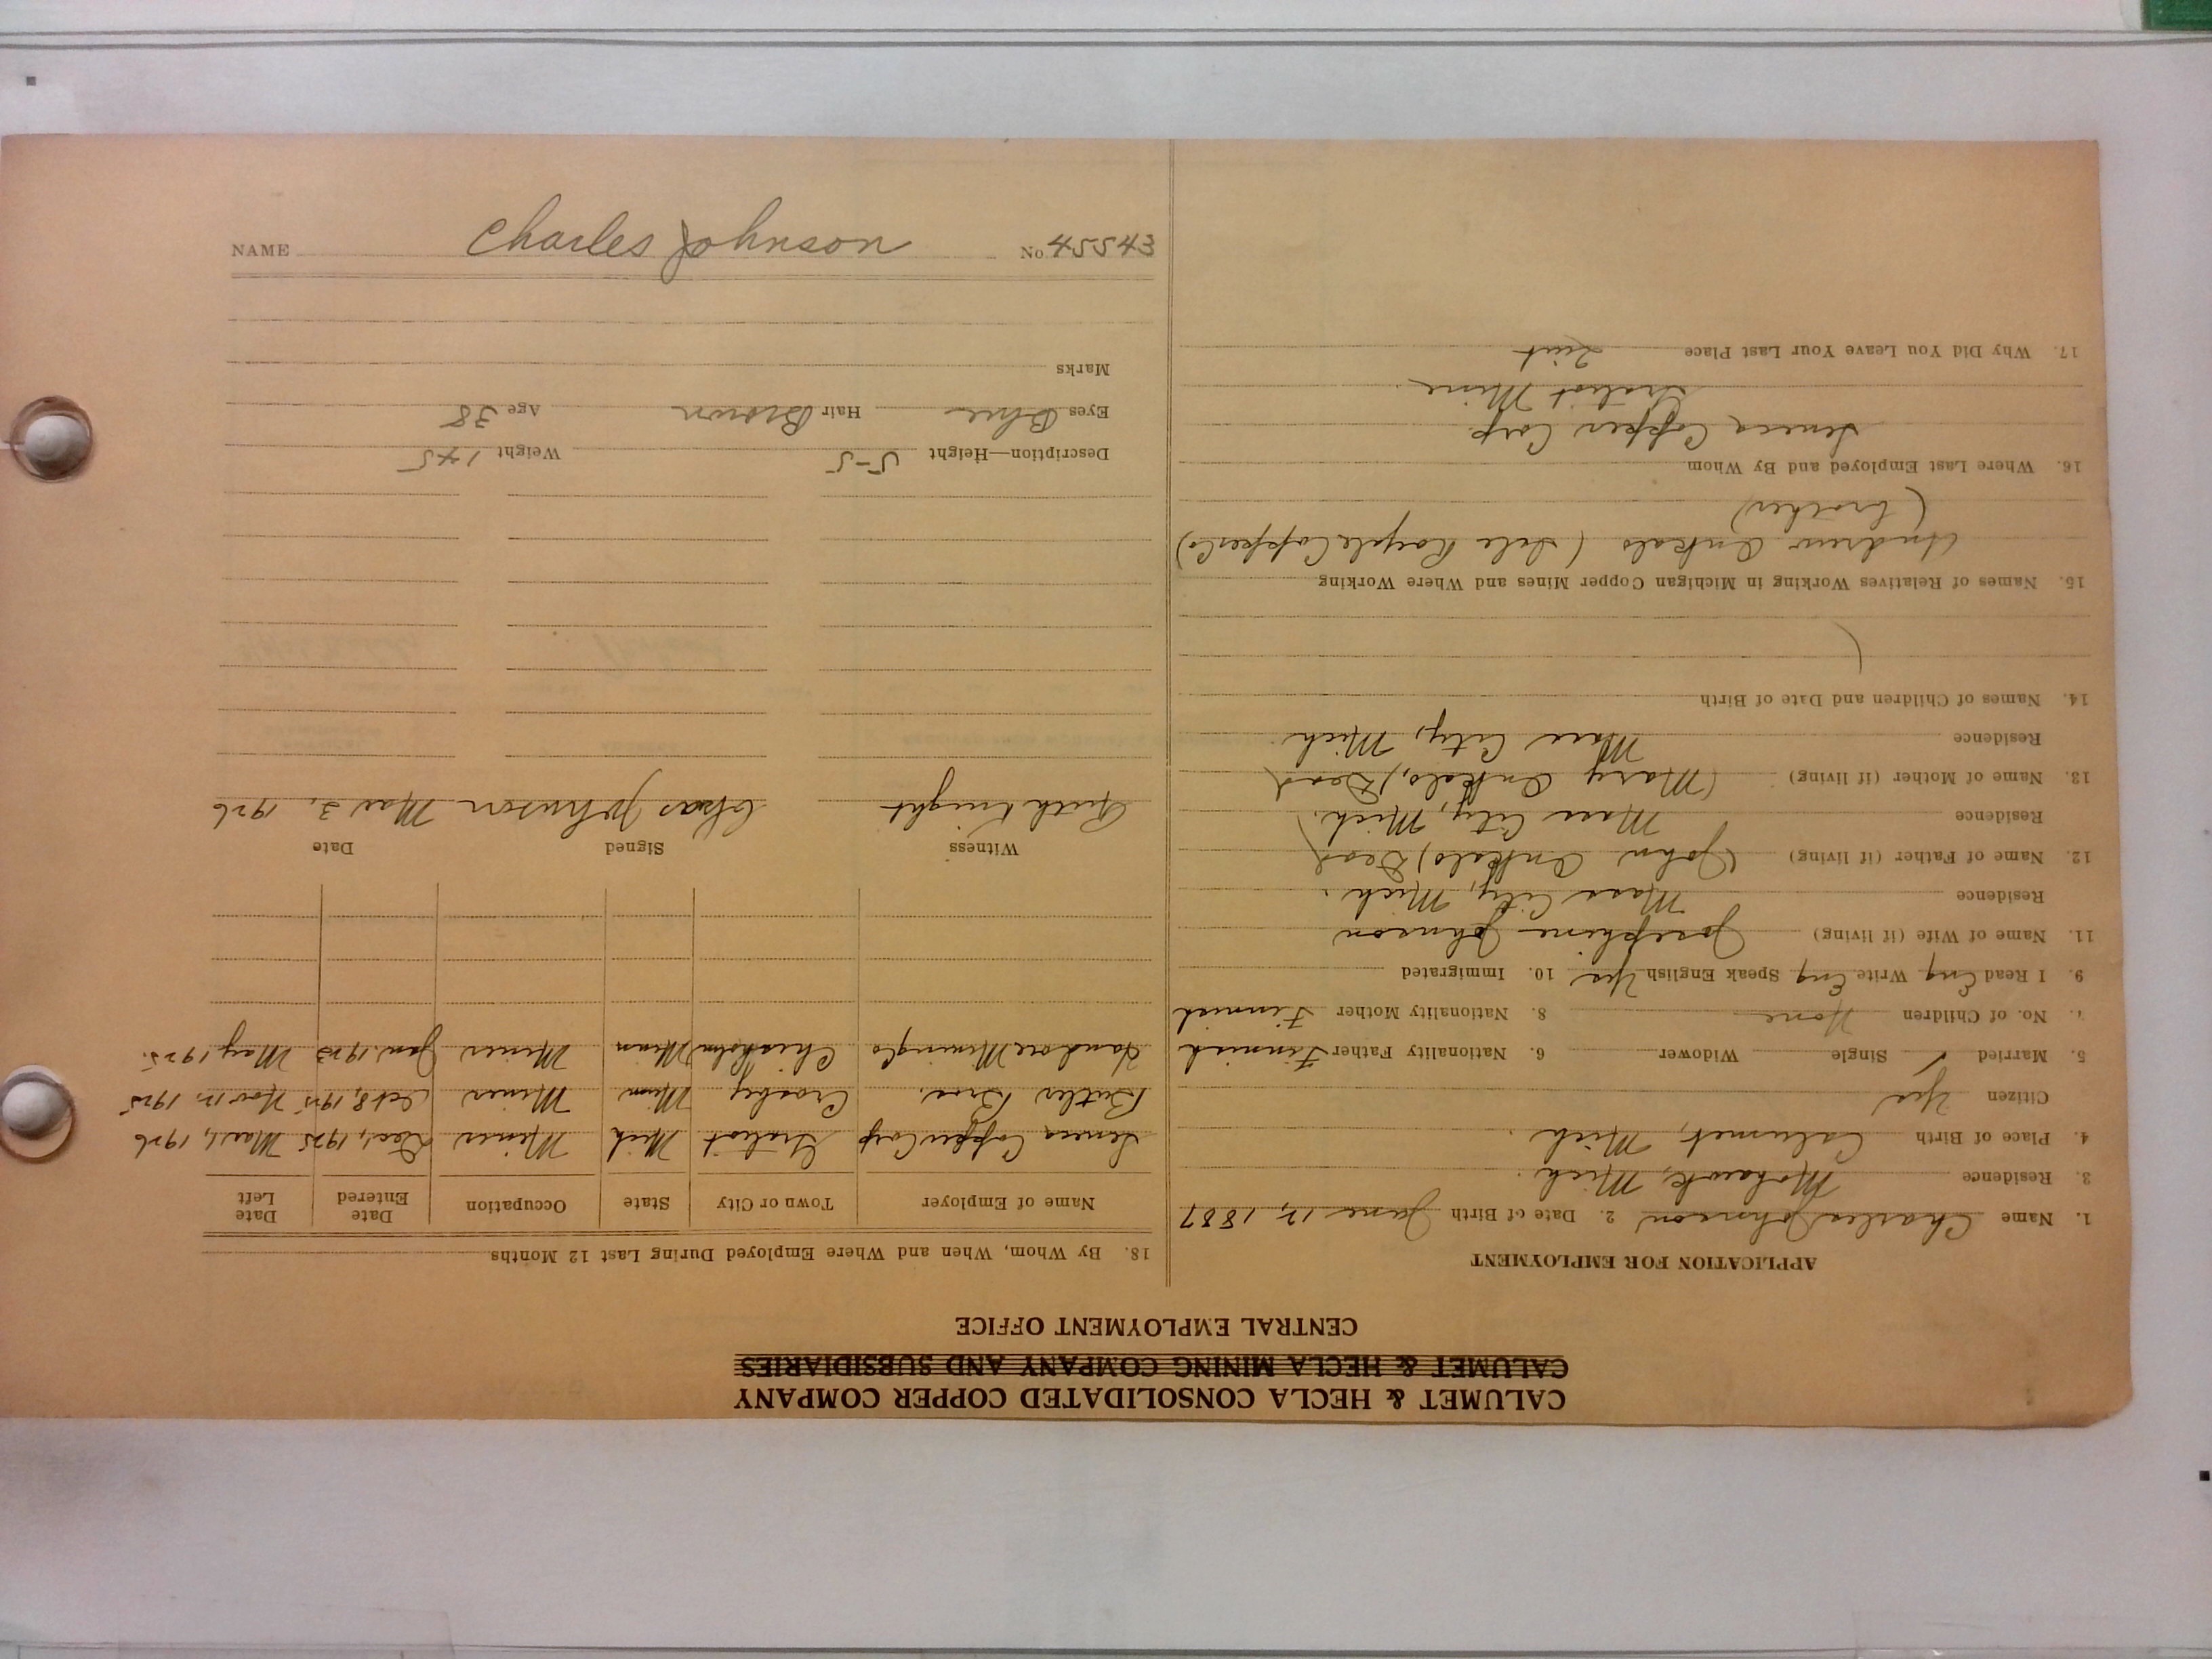 CALUMET & HECLA CONSOLIDATED COPPER COMPANY
CALUMET & HECLA MINING COMPANY AND SUBSIDIARIES
CENTRAL EMPLOYMENT OFFICE
APPLICATION FOR EMPLOYMENT
1. Name Charles Johnson 2. Date of Birth June 12, 1887
3. Residence Mohawk, Mich.
4. Place of Birth Calumet, Mich.
Citizen Yes
5. Married ✓ Single Widower 6. Nationality Father Finnish
7. No. of Children None 8. Nationality Mother Finnish
9. I Read Eng Write Eng Speak English Yes 10. Immigrated
11. Name of Wife (if living) Josephine Johnson
Residence Mass City, Mich.
12. Name of Father (if living) (John Ankalo) Dead
Residence Mass City, Mich.
13. Name of Mother (if living) (Mary Ankalo) Dead
Residence Mass City, Mich
14. Names of Children and Date of Birth
15. Names of Relatives Working in Michigan Copper Mines and Where Working
Andrew Ankalo (Isle Royale Copper Co)
(brother)
16. Where Last Employed and By Whom
Seneca Copper Corp.
Gratiot Mine.
17. Why Did You Leave Your Last Place Quit
18. By Whom, When and Where Employed During Last 12 Months
Name of Employer Town or City State Occupation Date Entered Date Left
Seneca Copper Corp Gratiot Mich Miner Dec 1, 1925 Mar 1, 1926
Butler Bros. Crosby Minn Miner Oct 8, 1925 Nov 12, 1925
Mining Co Chisholm Minn Miner Jan. 1923 May 1925.
Witness Signed Date
Ruth Knight Chas Johnson Mar 3, 1926
Description—Height 5-5 Weight 145
Eyes Blue Hair Brown Age 38
Marks
NAME Charles Johnson No. 45543